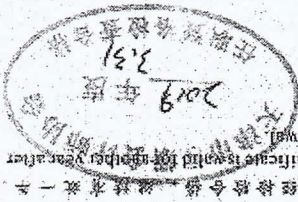 经检验合格,继续有效一年
ificate is valid for another year after
wal
2019 年度
3.31
任职资格检查合格